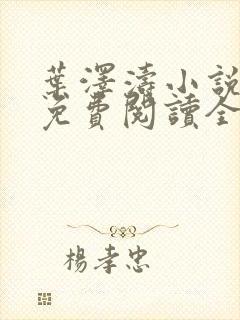 葉澤濤小說
免費閱讀全
楊孝忠